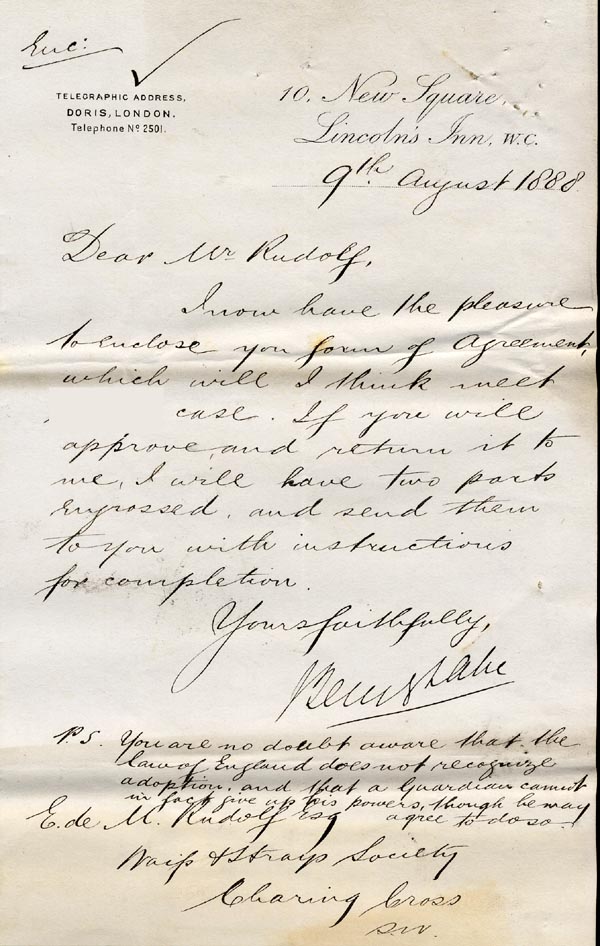 Enc:
TELEGRAPHIC ADDRESS,
DORIS, LONDON.
Telephone Nº 2501.
10, New Square,
Lincoln's Inn, W.C.
9th August 1888
Dear Mr Rudolf,
I now have the pleasure
to enclose you form of Agreement,
which will I think meet
case. If you will
approve and return it to
me, I will have two parts
engrossed, and send them
to you with instructions
for completion.
Yours faithfully,
P.S. You are no doubt aware that the
law of England does not recognize
adoption, and that a Guardian cannot
in fact give up his powers, though he may
agree to do so.
E. de M. Rudolf Esq
Waifs & Strays Society
Charing Cross
S.W.